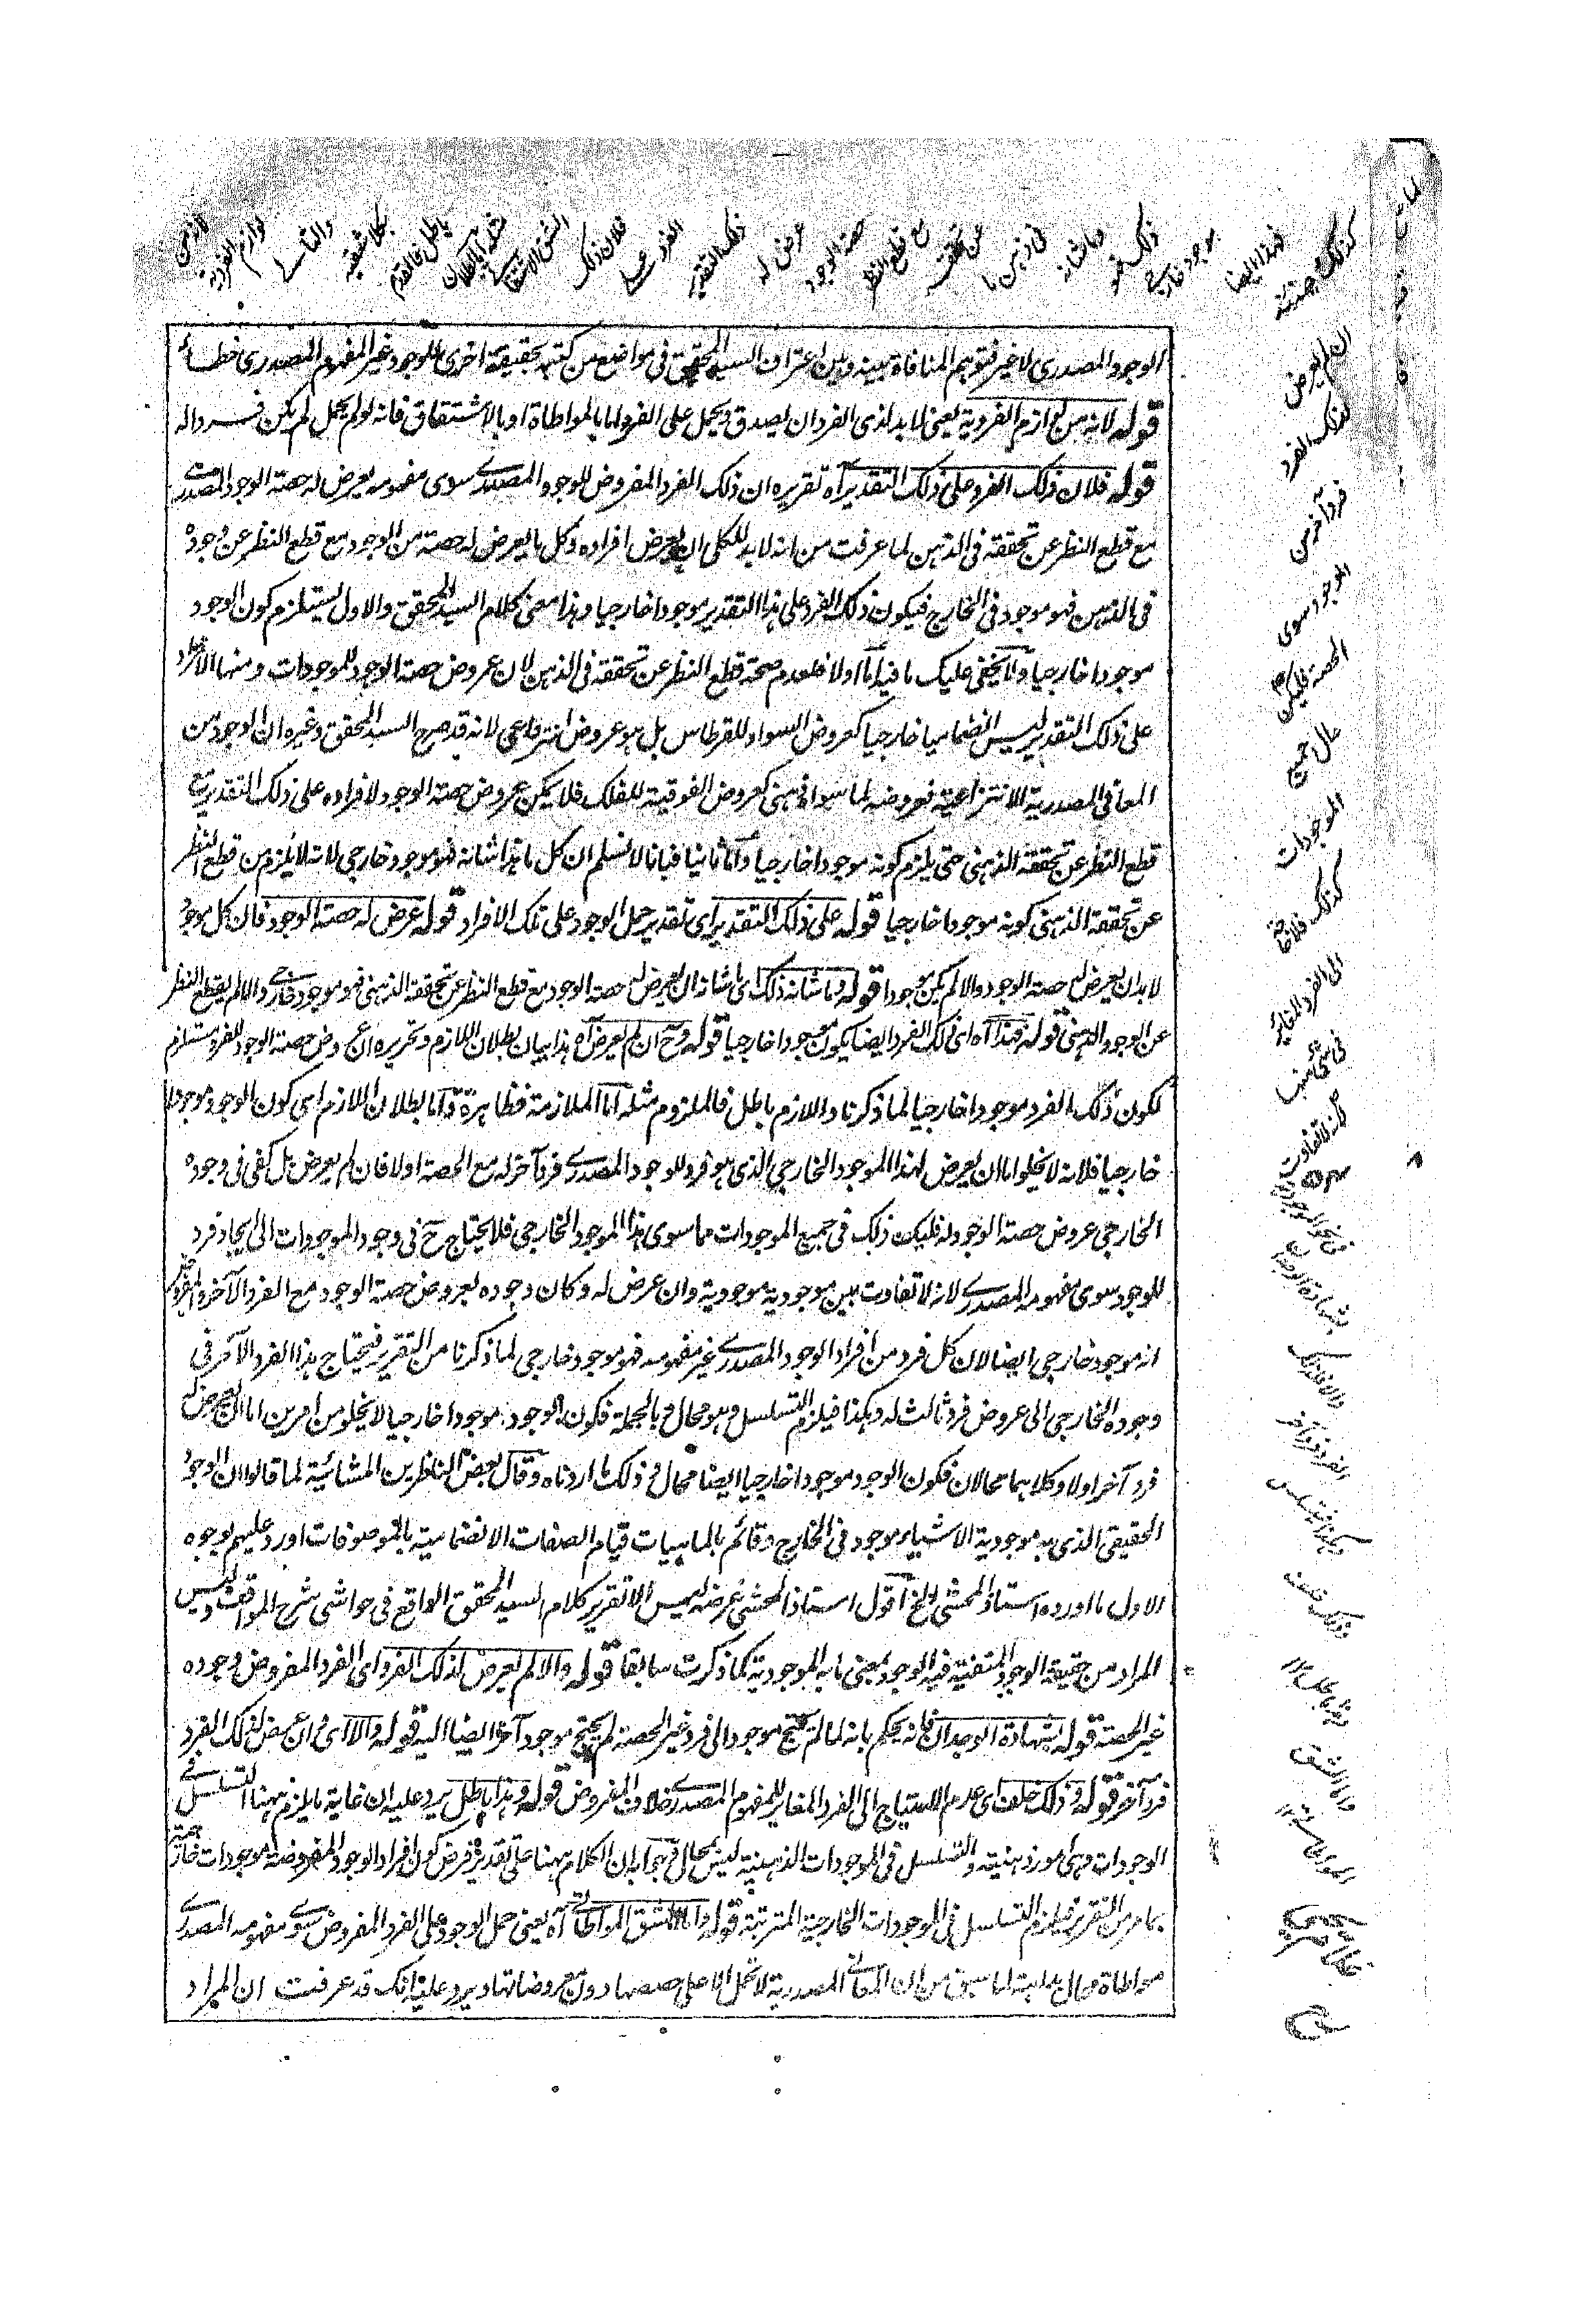 الوجود المصدرى لا غير فتوهم المنافاة بينه وبين اعتراف السيد المحقق فى مواضع من كتبه بحقيقة اخرى للوجود غير المفهوم المصدرى خطأ
قوله لانه من لوازم الفردية يعنى لا بد لذى الفرد ان يصدق ويحمل على الفرد اما بالمواطاة او بالاشتقاق فانه لو لم يحمل لم يكن فردا له
قوله فلان ذلك الفرد على ذلك التقدير آه تقريره ان ذلك الفرد المفروض للوجود المصدرى سوى مفهومه يعرض له حصة الوجود المصدرى
مع قطع النظر عن تحققه فى الذهن لما عرفت من انه لا بد للكلى ان يعرض افراده وكل ما يعرض له حصة من الوجود مع قطع النظر عن وجوده
فى الذهن فهو موجود فى الخارج فيكون ذلك الفرد على هذا التقدير موجودا خارجيا وهذا معنى كلام السيد المحقق والاول يستلزم كون الوجود
موجودا خارجيا ولا يخفى عليك ما فيه اما اولا فلعدم صحة قطع النظر عن تحققه فى الذهن لان عروض حصة الوجود للموجودات ومنها الافراد
على ذلك التقدير ليس انضماميا خارجيا كعروض السواد للقرطاس بل هو عروض انتزاعى لانه قد صرح السيد المحقق وغيره ان الوجود من
المعانى المصدرية الانتزاعية فعروضه لما سواه ذهنى كعروض الفوقية للفلك فلا يمكن عروض حصة الوجود لافراده على ذلك التقدير مع
قطع النظر عن تحققه الذهنى حتى يلزم كونه موجودا خارجيا واما ثانيا فبانا لا نسلم ان كل ما هذا شانه فهو موجود خارجى لانه لا يلزم من قطع النظر
عن تحققه الذهنى كونه موجودا خارجيا قوله على ذلك التقدير اى تقدير حمل الوجود على تلك الافراد قوله عرض له حصة الوجود فان كل موجود
لا بد ان يعرض له حصة الوجود والا لم يكن موجودا قوله وما شانه ذلك اى ما شانه ان يعرض له حصة الوجود مع قطع النظر عن تحققه الذهنى فهو موجود خارجى والا لم يقطع النظر
عن الوجود الذهنى قوله فهذا آه اى ذلك الفرد ايضا يكون موجودا خارجيا قوله وح ان لم يعرض آه هذا بيان بطلان اللازم وتحريره ان عروض حصة الوجود للفرد مستلزم
لكون ذلك الفرد موجودا خارجيا لما ذكرنا واللازم باطل فالملزوم مثله اما الملازمة فظاهرة واما بطلان اللازم اى كون الوجود موجودا
خارجيا فلانه لا يخلو اما ان يعرض لهذا الموجود الخارجى الذى هو فرد للوجود المصدرى فرد آخر له مع الحصة اولا فان لم يعرض بل كفى فى وجوده
الخارجى عروض حصة الوجود له فليكن ذلك فى جميع الموجودات مما سوى هذا الموجود الخارجى فلا يحتاج ح فى وجود الموجودات الى ايجاد فرد
للوجود سوى مفهومه المصدرى لانه لا تفاوت بين موجودية موجودية وان عرض له وكان وجوده بعروض حصة الوجود مع الفرد الآخر والمفروض
انه موجود خارجى ايضا لان كل فرد من افراد الوجود المصدرى غير مفهومه فهو موجود خارجى لما ذكرنا من التقرير فيحتاج هذا الفرد الآخر فى
وجوده الخارجى الى عروض فرد ثالث له وهكذا فيلزم التسلسل وهو محال وبالجملة فكون الوجود موجودا خارجيا لا يخلو من امرين اما ان يعرض له
فرد آخر اولا وكلاهما محالان فكون الوجود موجودا خارجيا ايضا محال وذلك ما اردناه وقال بعض الناظرين المشائية لما قالوا ان الوجود
الحقيقى الذى به موجودية الاشياء موجود فى الخارج وقائم بالماهيات قيام الصفات الانضمامية بالموصوفات اورد عليهم بوجوه
الاول ما اورده استاذ المحشى الخ اقول استاذ المحشى غرضه ليس الا تقرير كلام السيد المحقق الواقع فى حواشى شرح المواقف وليس
المراد من حقيقة الوجود المتغنية فيه الوجود بمعنى ما به الموجودية كما ذكرت سابقا قوله والا لم يعرض لذلك الفرد اى الفرد المفروض وجوده
غير الحصة قوله بشهادة الوجدان فانه يحكم بانه لما لم يحتج موجود الى فرد غير الحصة لم يحتج موجود آخر ايضا اليه قوله والا اى وان عرض لذلك الفرد
فرد آخر قوله وذلك خلف اى عدم الاحتياج الى الفرد المغاير للمفهوم المصدرى خلاف المفروض قوله وهذا باطل يرد عليه ان غاية ما يلزم ههنا التسلسل فى
الوجودات وهى امور ذهنية والتسلسل فى الموجودات الذهنية ليس بمحال وجوابه ان الكلام ههنا على تقدير فرض كون افراد الوجود المفروضة موجودات خارجية
بما مر من التقرير فيلزم التسلسل فى الموجودات الخارجية المترتبة قوله واما الشق المواطاتى آه يعنى حمل الوجود على الفرد المفروض سوى مفهومه المصدرى
مواطاة محال بداهة لما سبق من ان المعانى المصدرية لا تحمل الا على حصصها دون معروضاتها ويرد عليه انك قد عرفت ان المراد
لازمن
لوازم الفردية
والثانى
بكلا شقيه
باطل فالمقدم
مثله اما بطلان
الشق الاشتقاقى
فلان ذلك
الفرد على
ذلك التقدير
عرض له
حصة الوجود
مع قطع النظر
عن تحققه
فى ذهن ما
وما شانه
ذلك فهو
موجود خارجى
فهذا ايضا
كذلك وحينئذ
ان لم يعرض
لذلك الفرد
فرد آخر من
الوجود سوى
الحصة فليكن
حال جميع
الموجودات
كذلك فلا حاجة
الى الفرد المغاير
فى شئ منها
اذ لا تفاوت
بين
نحو الوجودين
بشهادة الوجدان
والا فلذلك
الفرد فرد آخر
وهكذا فيتسلسل
وذلك خلف
وهذا باطل ١٢
واما الشق